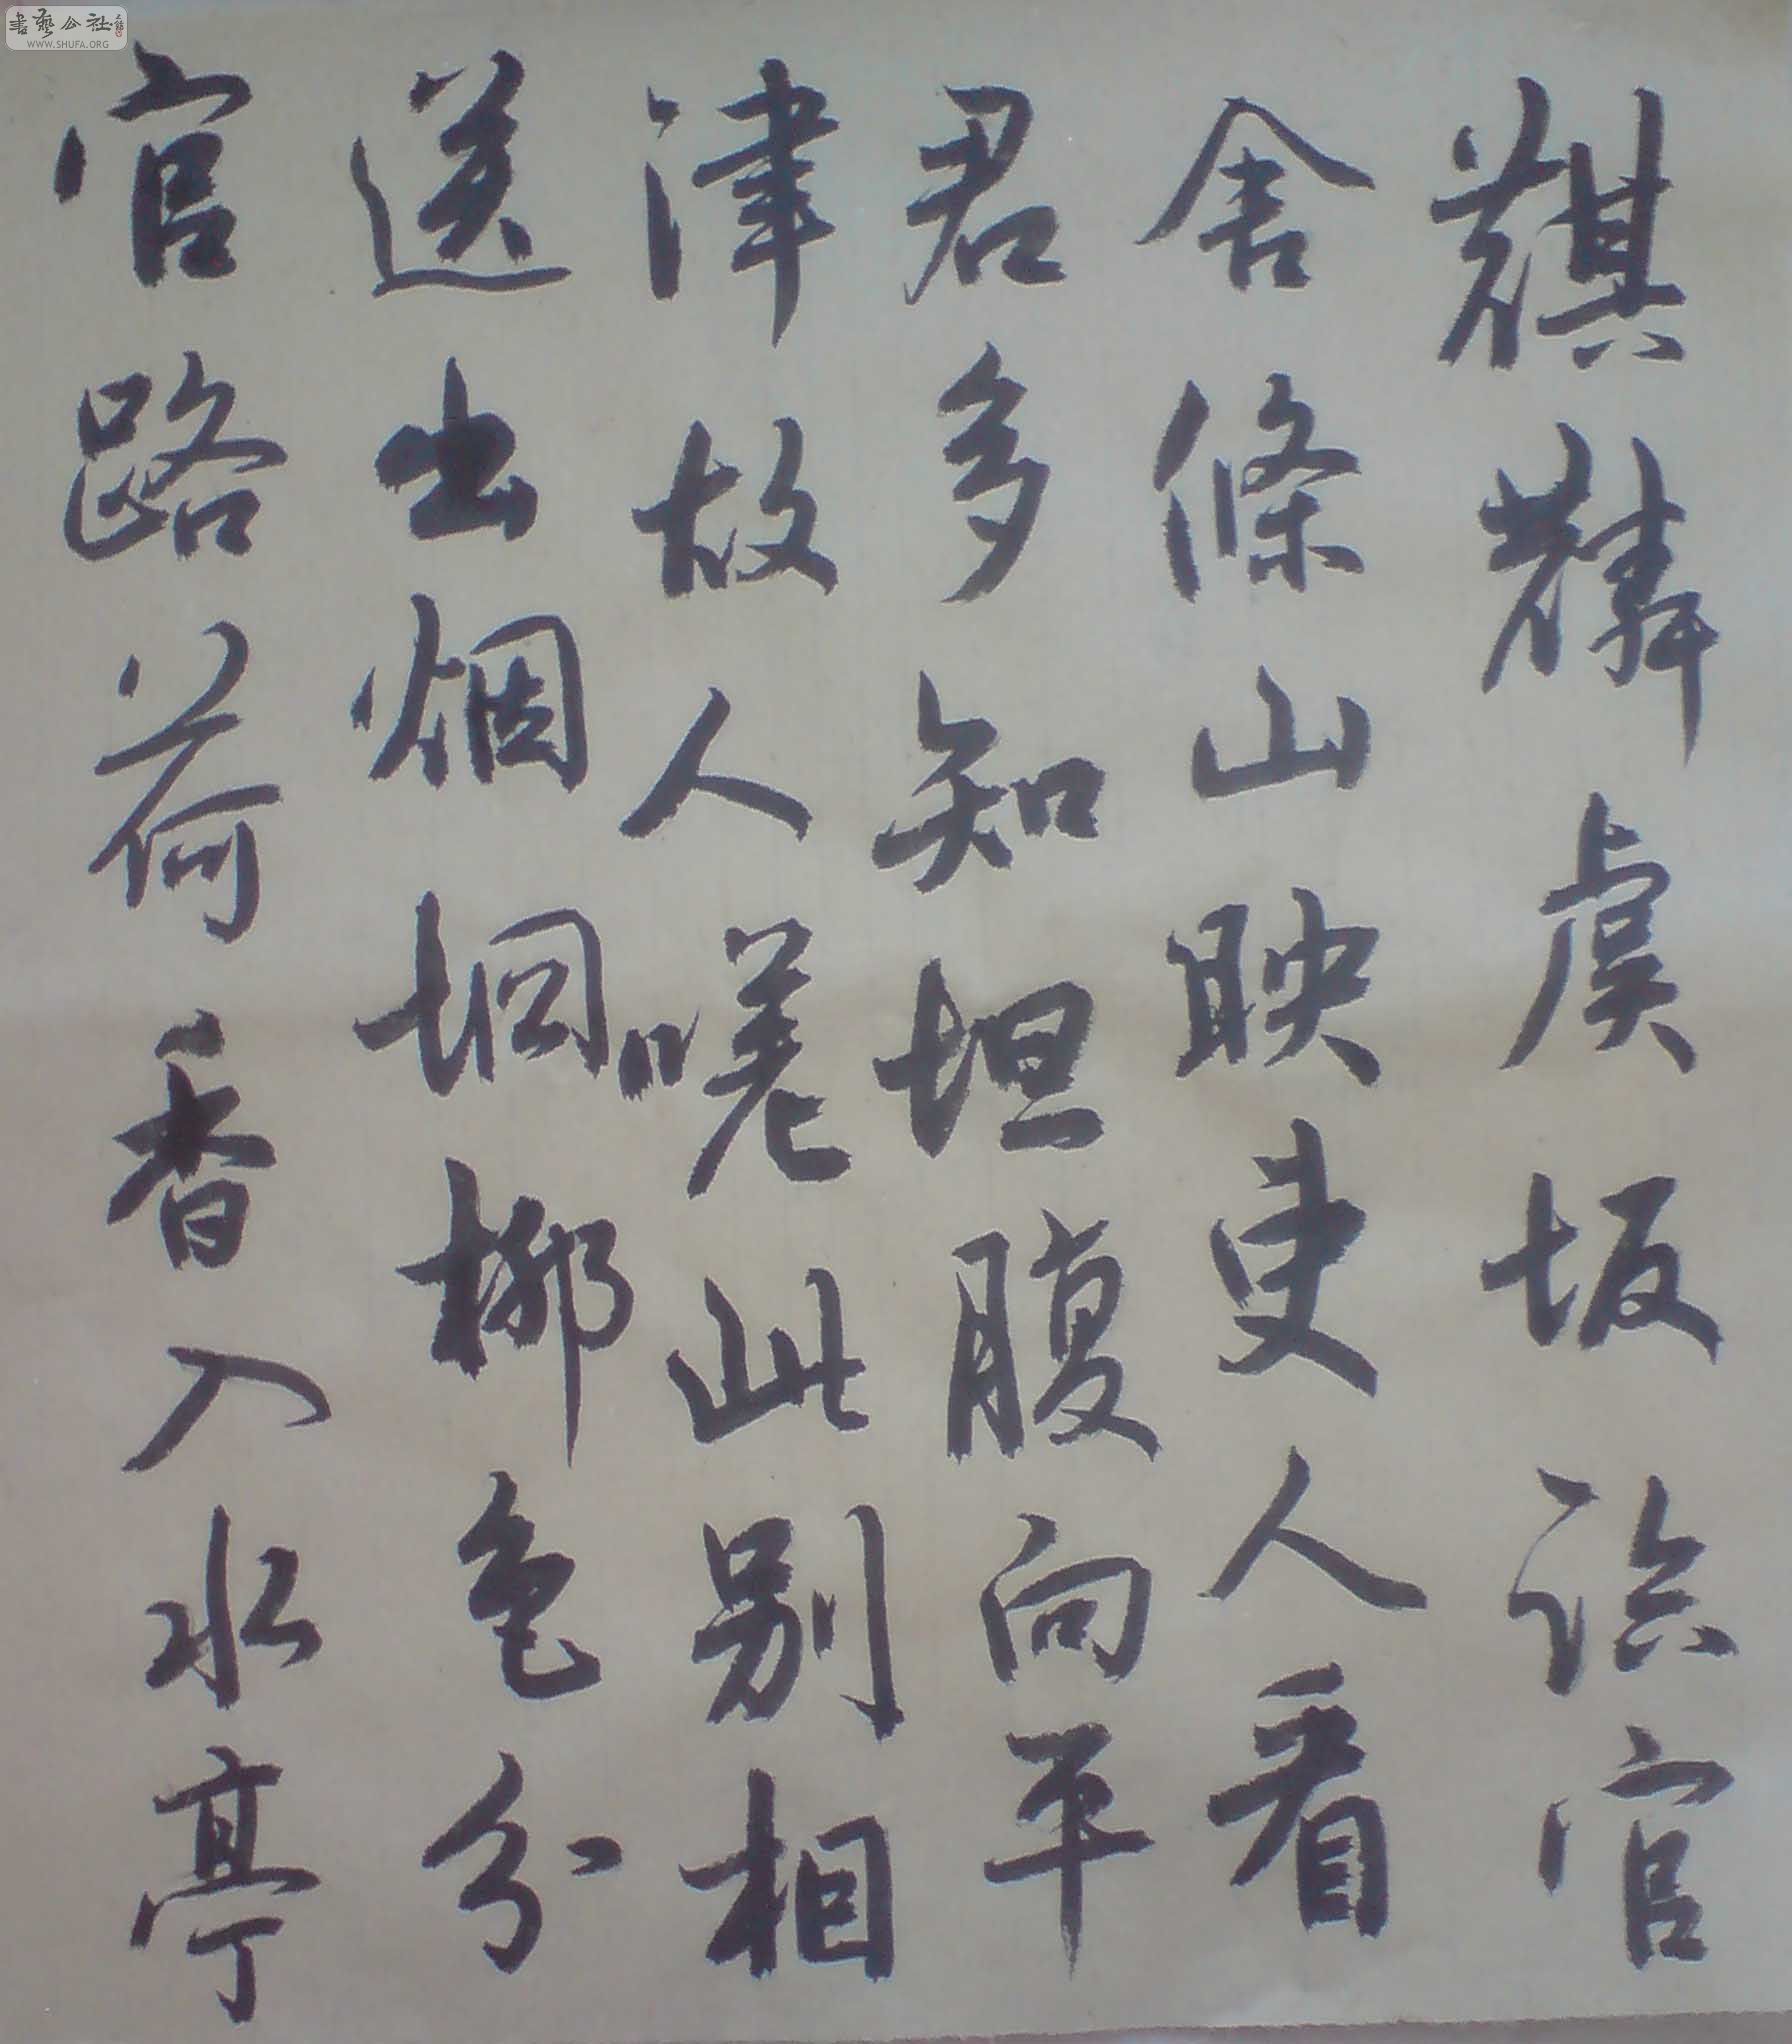 麒麟虞坂臨官
舍條山映吏人看
君多知坦腹向平
津故人嗟此別相
送出烟坰柳色分
官路荷香入水亭
書藝公社
WWW.SHUFA.ORG